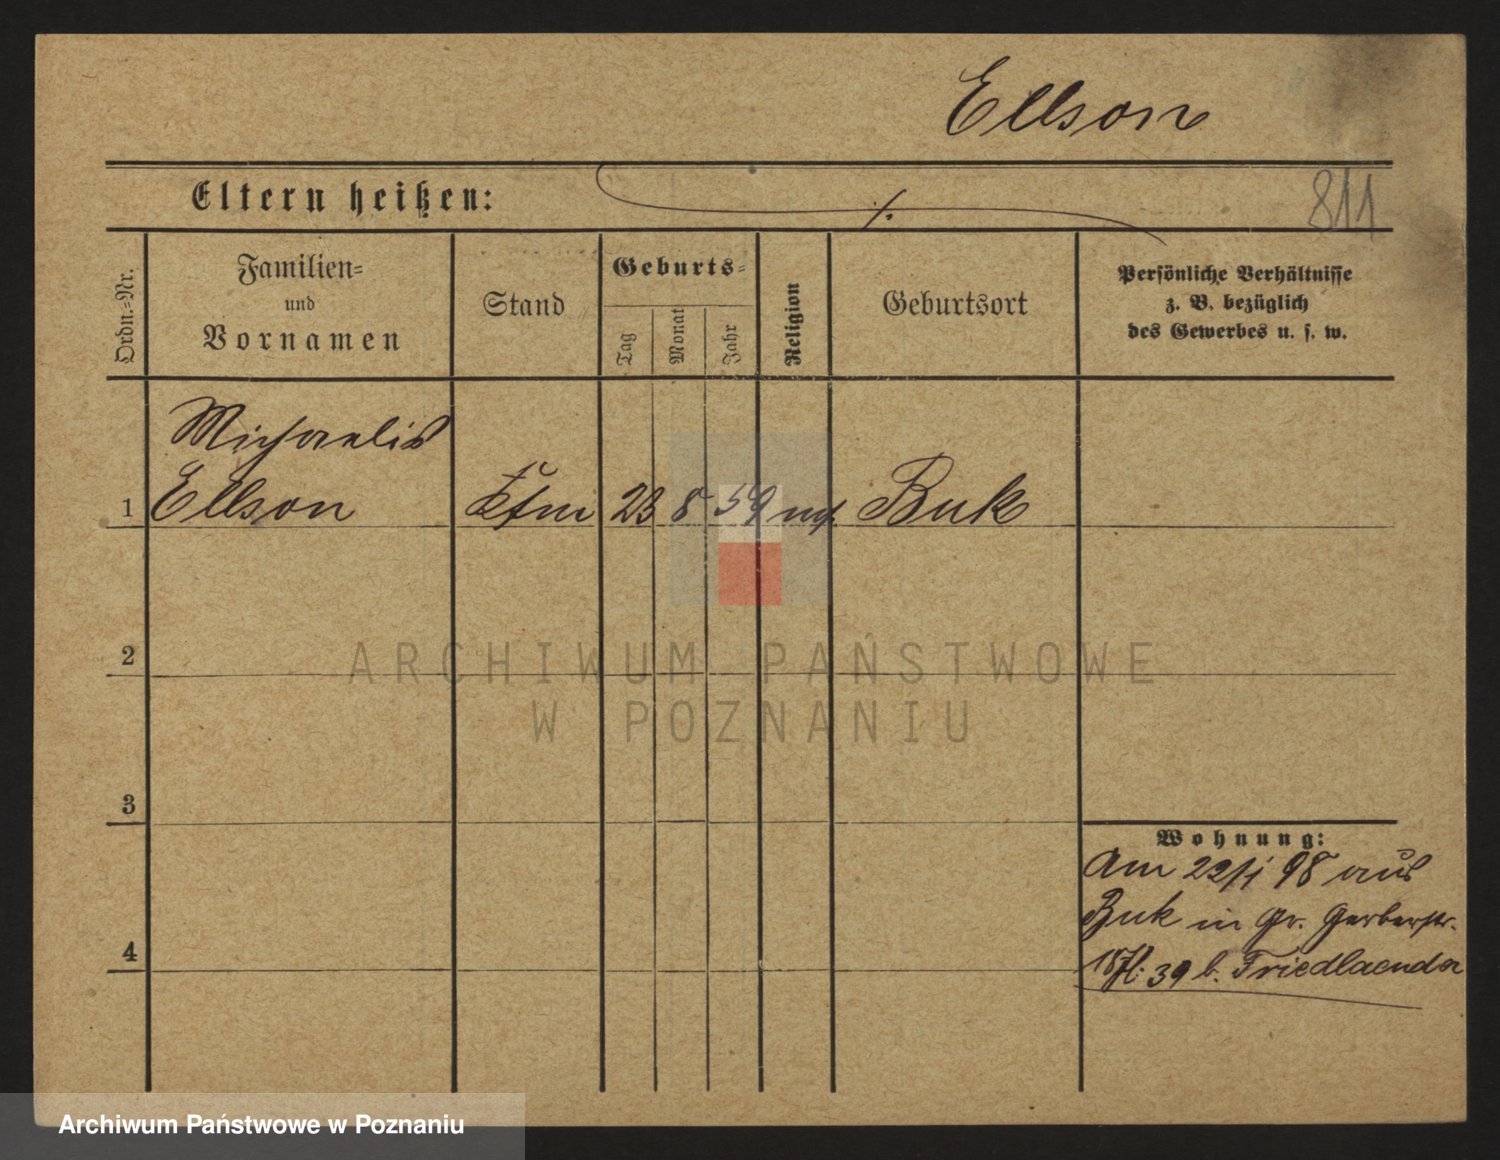 Ellson
Eltern heißen: ./.
811
Ordn.=Nr.
Familien=
und
Vornamen
Stand
Geburts=
Tag
Monat
Jahr
Religion
Geburtsort
Persönliche Verhältnisse
z. B. bezüglich
des Gewerbes u. s. w.
Michaelis
1 Ellson Kfm 23 8 59 Buk
2
ARCHIWUM PAŃSTWOWE
W POZNANIU
3
Wohnung:
Am 22/1 98 aus
Buk in Gr. Gerberstr.
39 b. Friedlaender
4
Archiwum Państwowe w Poznaniu